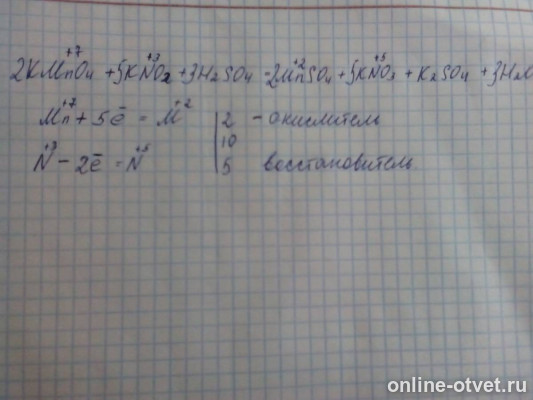 2KMn⁺⁷O₄ + 5KN⁺³O₂ + 3H₂SO₄ - 2Mn⁺²SO₄ + 5KN⁺⁵O₃ + K₂SO₄ + 3H₂
Mn⁺⁷ + 5ē = M⁺² | 2 - окислитель
10
N⁺³ - 2ē = N⁺⁵ | 5 восстановитель
online-otvet.ru